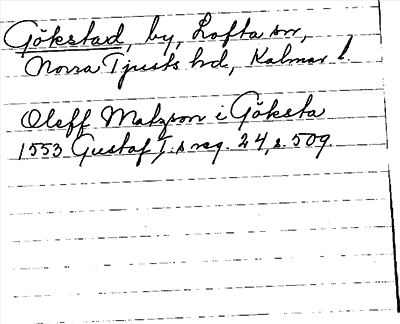 Gökstad, by, Lofta sn,
Norra Tjusts hd, Kalmar l.
Oleff Matzson i Göksta
1553 Gustaf I:s reg. 24, s. 509.